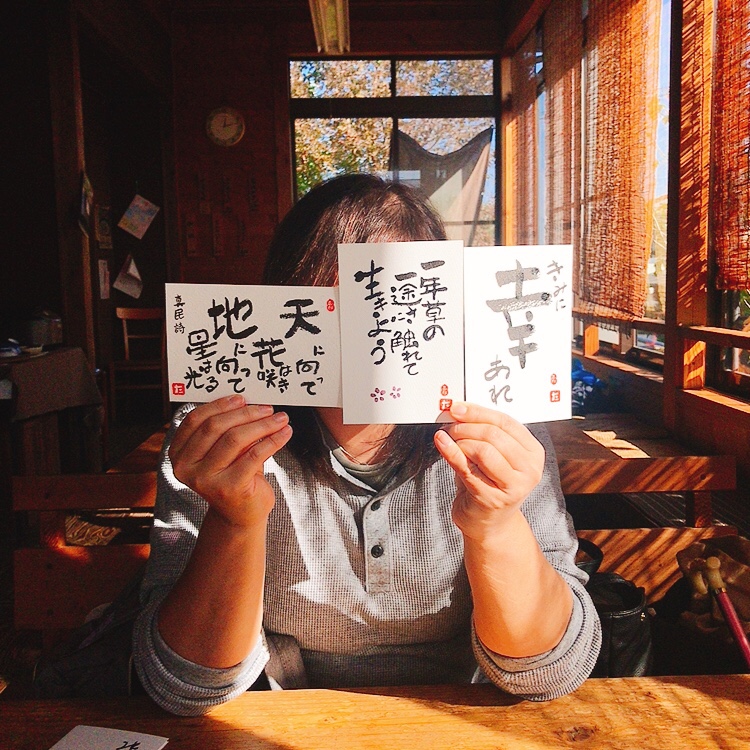 天に向って
花は咲き
地に向って
星は光る
真民詩
一年草の
一途さに触れて
生きよう
きみに
幸
あれ